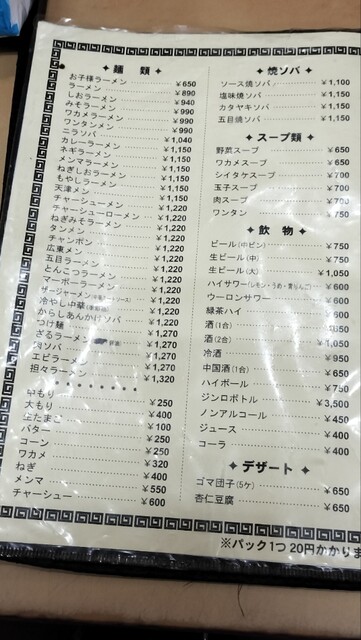 ✦ 麺 類 ✦
お子様ラーメン ¥650
ラーメン ¥890
しおラーメン ¥940
みそラーメン ¥990
ワカメラーメン ¥990
ワンタンメン ¥990
ニラソバ ¥1,040
カレーラーメン ¥1,150
ネギラーメン ¥1,150
メンマラーメン ¥1,150
ねぎしおラーメン ¥1,150
もやしラーメン ¥1,150
天津メン ¥1,220
チャーシューメン ¥1,220
チャーシューローメン ¥1,220
ねぎみそラーメン ¥1,220
タンメン ¥1,220
チャンポン ¥1,220
広東メン ¥1,220
五目ラーメン ¥1,220
とんこつラーメン ¥1,220
マーボーラーメン ¥1,220
ザージャーメン
冷やし中華 ¥1,220
からしあんかけソバ ¥1,220
つけ麺 ¥1,270
ざるラーメン ¥1,270
ソバ ¥1,270
エビラーメン ¥1,270
担々ラーメン ¥1,320
中もり ¥250
大もり ¥400
生たまご ¥100
バター ¥250
コーン ¥250
ワカメ ¥320
ねぎ ¥400
メンマ ¥550
チャーシュー ¥600
✦ 焼ソバ ✦
ソース焼ソバ ¥1,100
塩味焼ソバ ¥1,150
カタヤキソバ ¥1,150
五目焼ソバ ¥1,150
✦ スープ類 ✦
野菜スープ ¥650
ワカメスープ ¥650
シイタケスープ ¥700
玉子スープ ¥700
肉スープ ¥700
ワンタン ¥750
✦ 飲 物 ✦
ビール(中ビン) ¥750
生ビール(中) ¥750
生ビール(大) ¥1,050
ハイサワー(レモン・うめ・青りんご) ¥600
ウーロンサワー ¥600
緑茶ハイ ¥600
酒(1合) ¥550
酒(2合) ¥1,050
冷酒 ¥950
中国酒(1合) ¥650
ハイボール ¥750
ジンロボトル ¥3,500
ノンアルコール ¥450
ジュース ¥400
コーラ ¥400
✦ デザート ✦
ゴマ団子(5ケ) ¥650
杏仁豆腐 ¥650
※パック1つ 20円かかりま